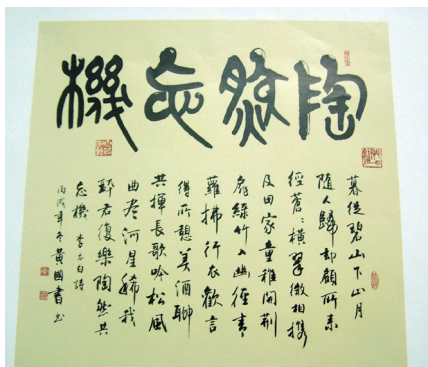 陶然忘機
暮從碧山下山月
隨人歸却顧所来
徑蒼〻橫翠微相攜
及田家童稚開荆
扉綠竹入幽徑青
蘿拂行衣歡言
得所憩美酒聊
共揮長歌吟松風
曲盡河星稀我
醉君復樂陶然共
忘機 李太白詩
丙戌年冬黄國書